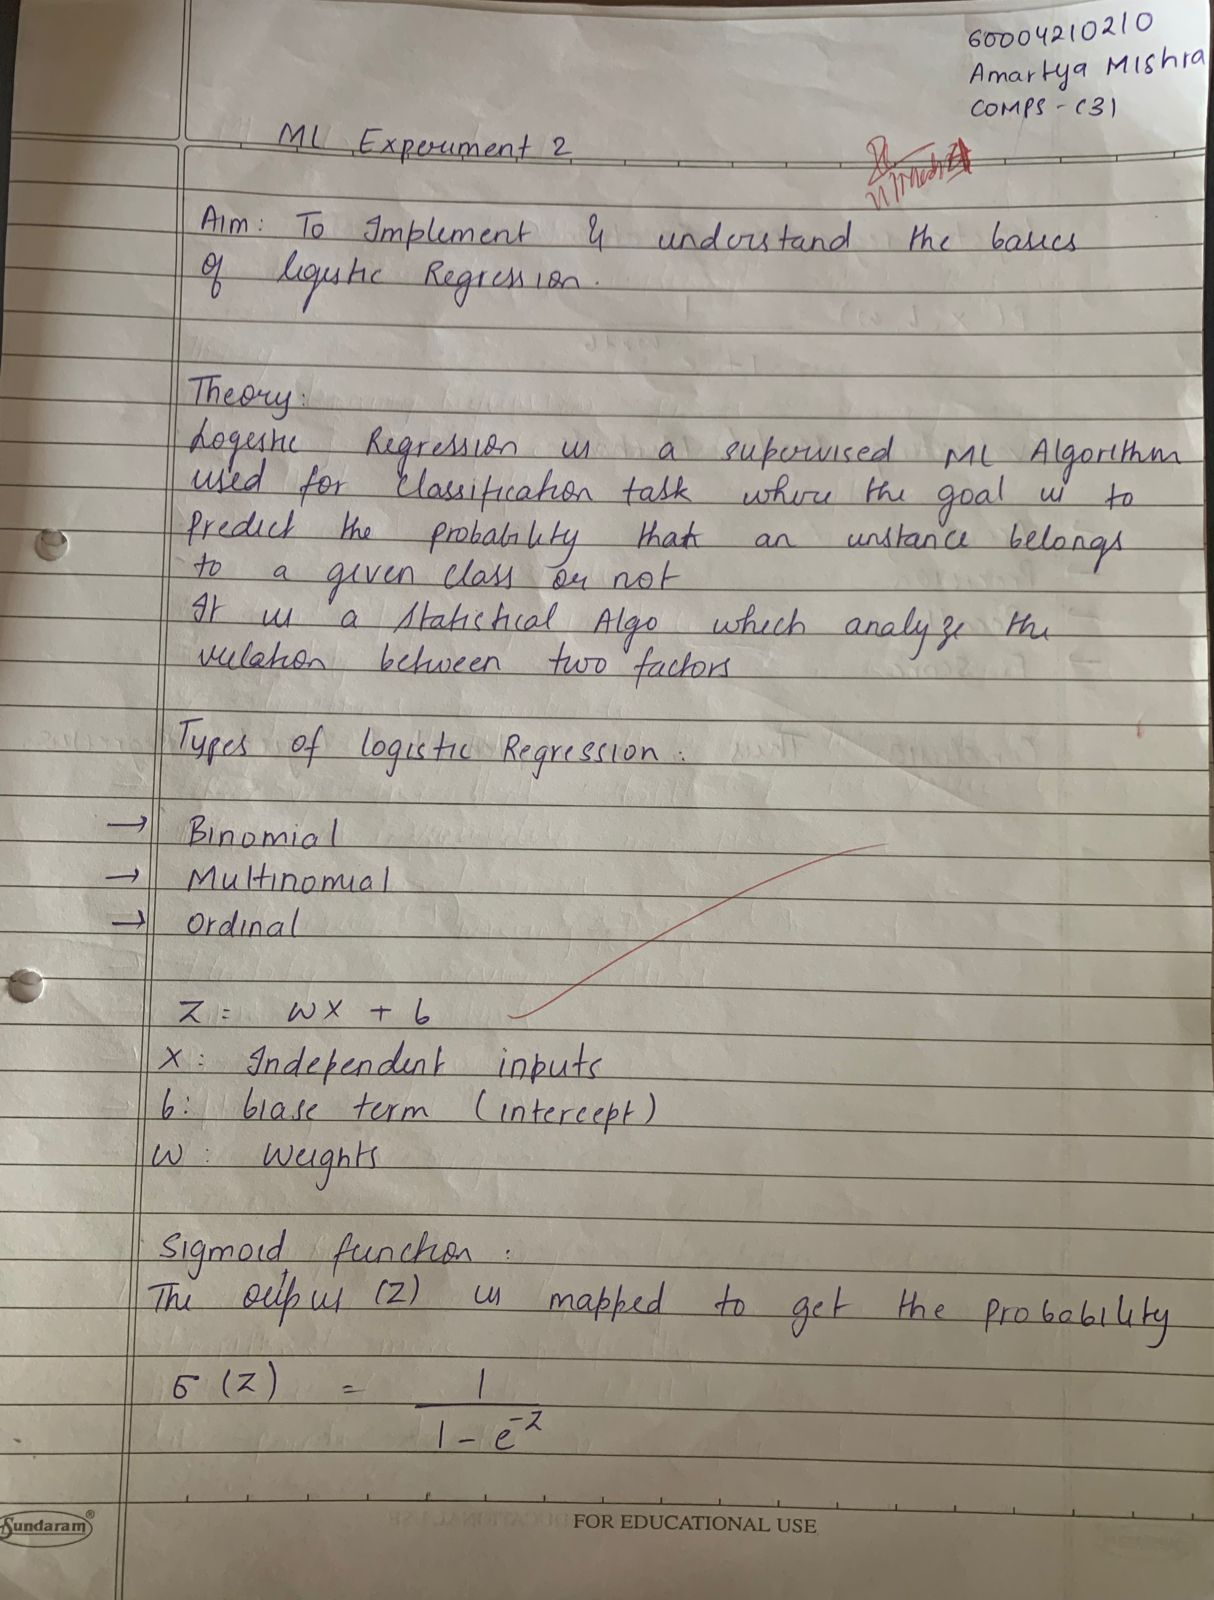 60004210210
Amartya Mishra
COMPS - C31
ML Experiment 2
Aim: To Implement & understand the basics
of logistic Regression.
Theory:
Logestic Regression is a supervised ML Algorithm
used for classification task where the goal is to
predict the probability that an instance belongs
to a given class or not
It is a Statistical Algo which analyze the
relation between two factors
Types of logistic Regression:
→ Binomial
→ Multinomial
→ Ordinal
Z = wx + b
x: Independent inputs
b: biase term (intercept)
w: Weights
Sigmoid function:
The (Z) is mapped to get the probability
σ(Z) = 1
1 - e^-z
Sundaram®
FOR EDUCATIONAL USE